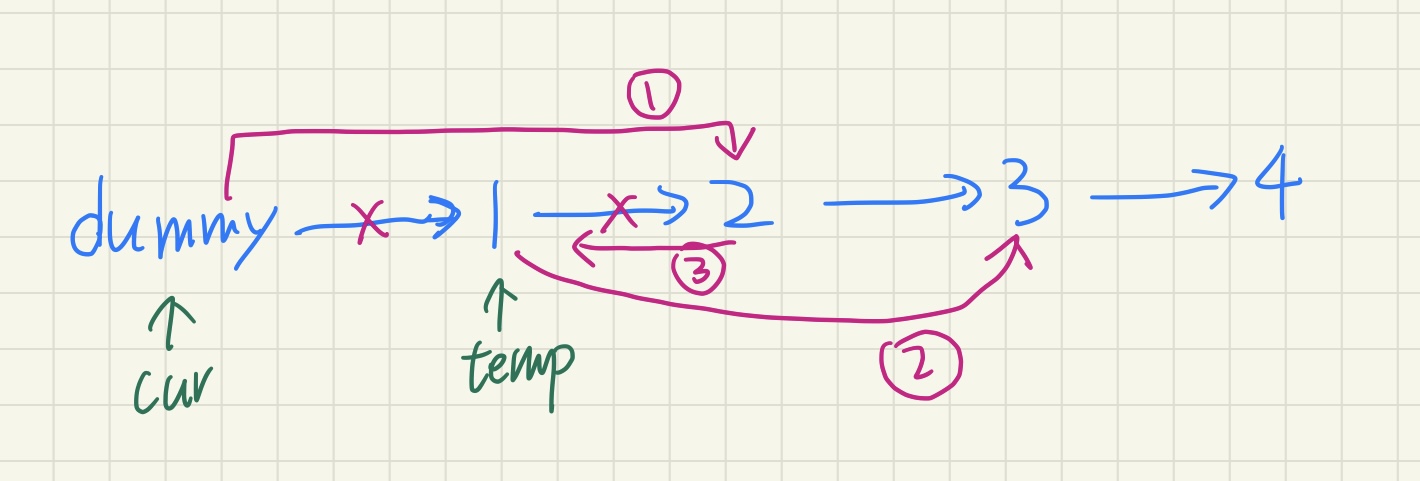 ①
dummy 1 2 3 4
③
②
cur temp